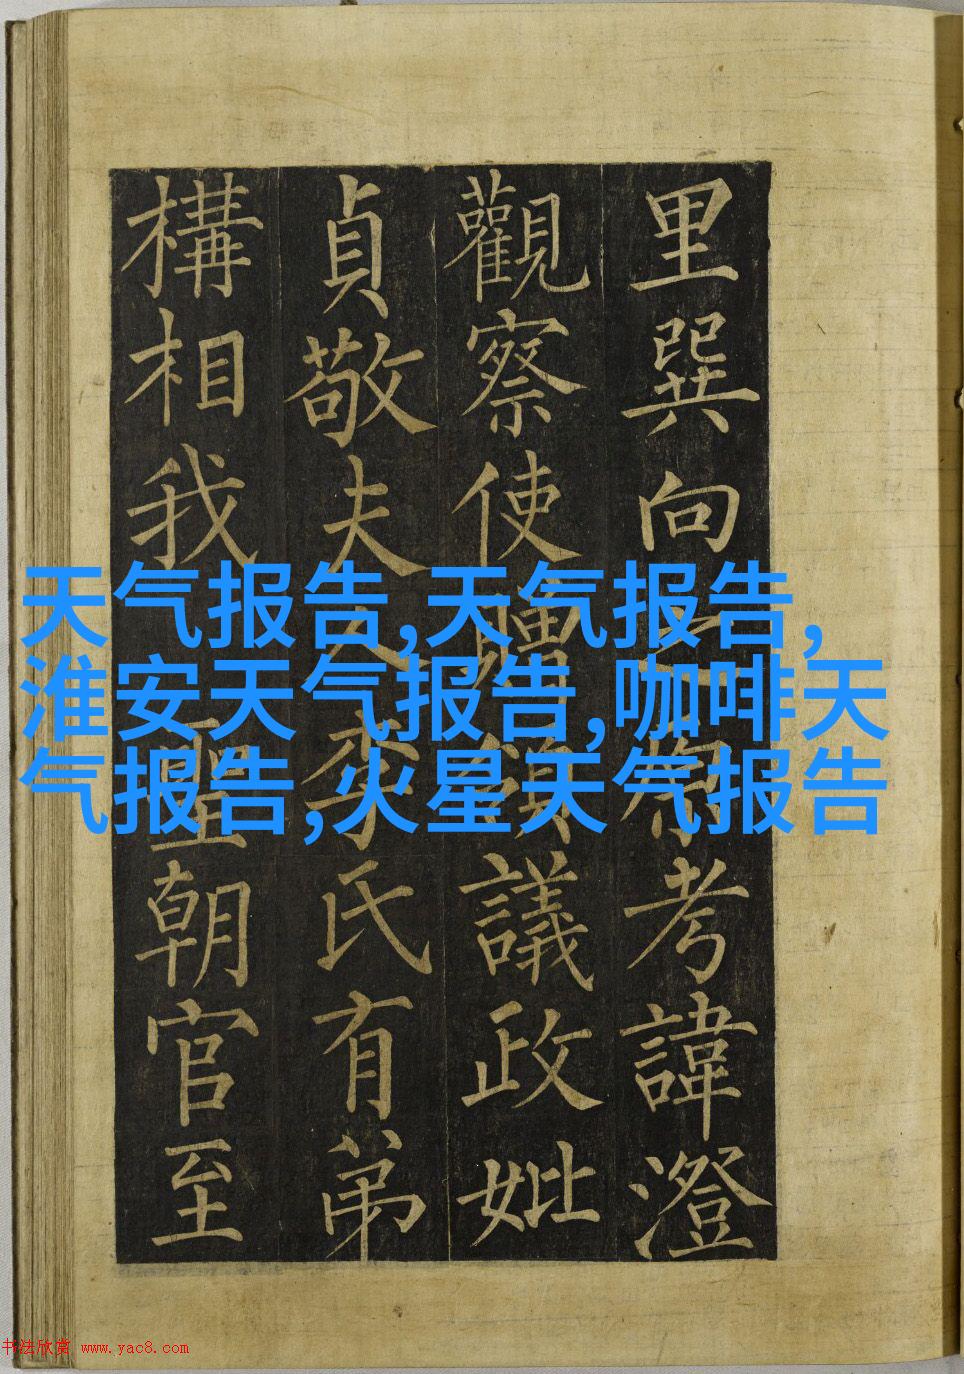 里巽向考諱澄
觀察使贈議政妣
貞敬夫人李氏有弟
構相我聖朝官至
天气报告,天气报告,
淮安天气报告,咖啡天
气报告,火星天气报告
书法欣赏 www.yac8.com